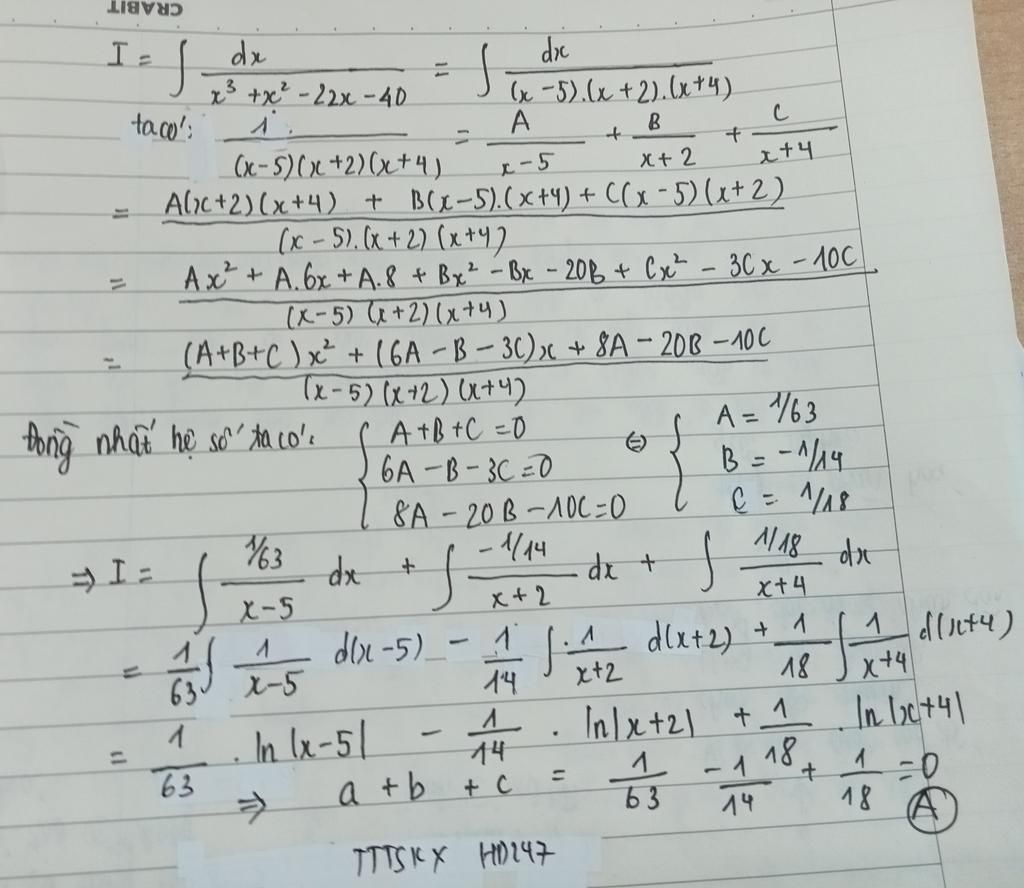 CRABIT
I = ∫ dx / (x³ + x² - 22x - 40) = ∫ dx / ((x-5).(x+2).(x+4))
ta có: 1 / ((x-5)(x+2)(x+4)) = A / (x-5) + B / (x+2) + C / (x+4)
= (A(x+2)(x+4) + B(x-5).(x+4) + C(x-5)(x+2)) / ((x-5).(x+2)(x+4))
= (Ax² + A.6x + A.8 + Bx² - Bx - 20B + Cx² - 3Cx - 10C) / ((x-5)(x+2)(x+4))
= ((A+B+C)x² + (6A - B - 3C)x + 8A - 20B - 10C) / ((x-5)(x+2)(x+4))
Đồng nhất hệ số ta có: { A+B+C=0 ⇔ { A = 1/63
6A - B - 3C = 0 B = -1/14
8A - 20B - 10C = 0 C = 1/18
⇒ I = ∫ (1/63) / (x-5) dx + ∫ (-1/14) / (x+2) dx + ∫ (1/18) / (x+4) dx
= 1/63 ∫ 1/(x-5) d(x-5) - 1/14 ∫ 1/(x+2) d(x+2) + 1/18 ∫ 1/(x+4) d(x+4)
= 1/63 . ln|x-5| - 1/14 . ln|x+2| + 1/18 . ln|x+4|
⇒ a + b + c = 1/63 - 1/14 + 1/18 = 0 A
TTTSKX HD247